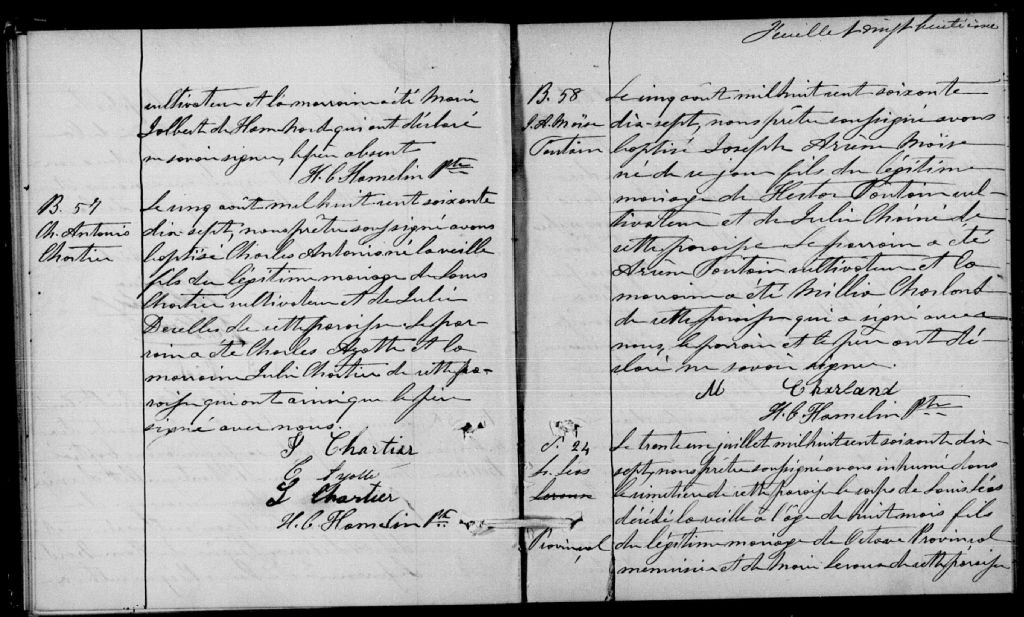 cultivateur et la marraine a été Marie
Jolbert de Ham-Nord qui ont déclaré
ne savoir signer, le père absent
H. C. Hamelin Ptre
B. 57
Ch. Antonio
Chartier
Le cinq août mil huit cent soixante
dix-sept, nous prêtre soussigné avons
baptisé Charles Antonio né la veille
fils du légitime mariage de Louis
Chartier cultivateur et de Julie
Deselles de cette paroisse. Le par-
rain a été Charles Ayotte et la
marraine Julie Chartier de cette pa-
roisse qui ont ainsi que le père
signé avec nous.
J Chartier
C Ayotte
L Chartier
H. C. Hamelin Ptre
Feuillet vingt huitième
B. 58
J. A. Moïse
Fontain
Le cinq août mil huit cent soixante
dix-sept, nous prêtre soussigné avons
baptisé Joseph Arsène Moïse
né ce jour fils du légitime
mariage de Hector Fontain cul-
tivateur et de Julie Chaîné de
cette paroisse. Le parrain a été
Arsène Fontain cultivateur et la
marraine a été Millia Charland
de cette paroisse qui a signé avec
nous, le parrain et le père ont dé-
claré ne savoir signer.
M Charland
H. C. Hamelin Ptre
S. 24
Ls. Léos
Provincal
Le trente un juillet mil huit cent soixante dix-
sept, nous prêtre soussigné avons inhumé dans
le cimetière de cette paroisse le corps de Louis Léos
décédé la veille à l'âge de huit mois fils
du légitime mariage de Octave Provincal
menuisier et de Marie Leroux de cette paroisse